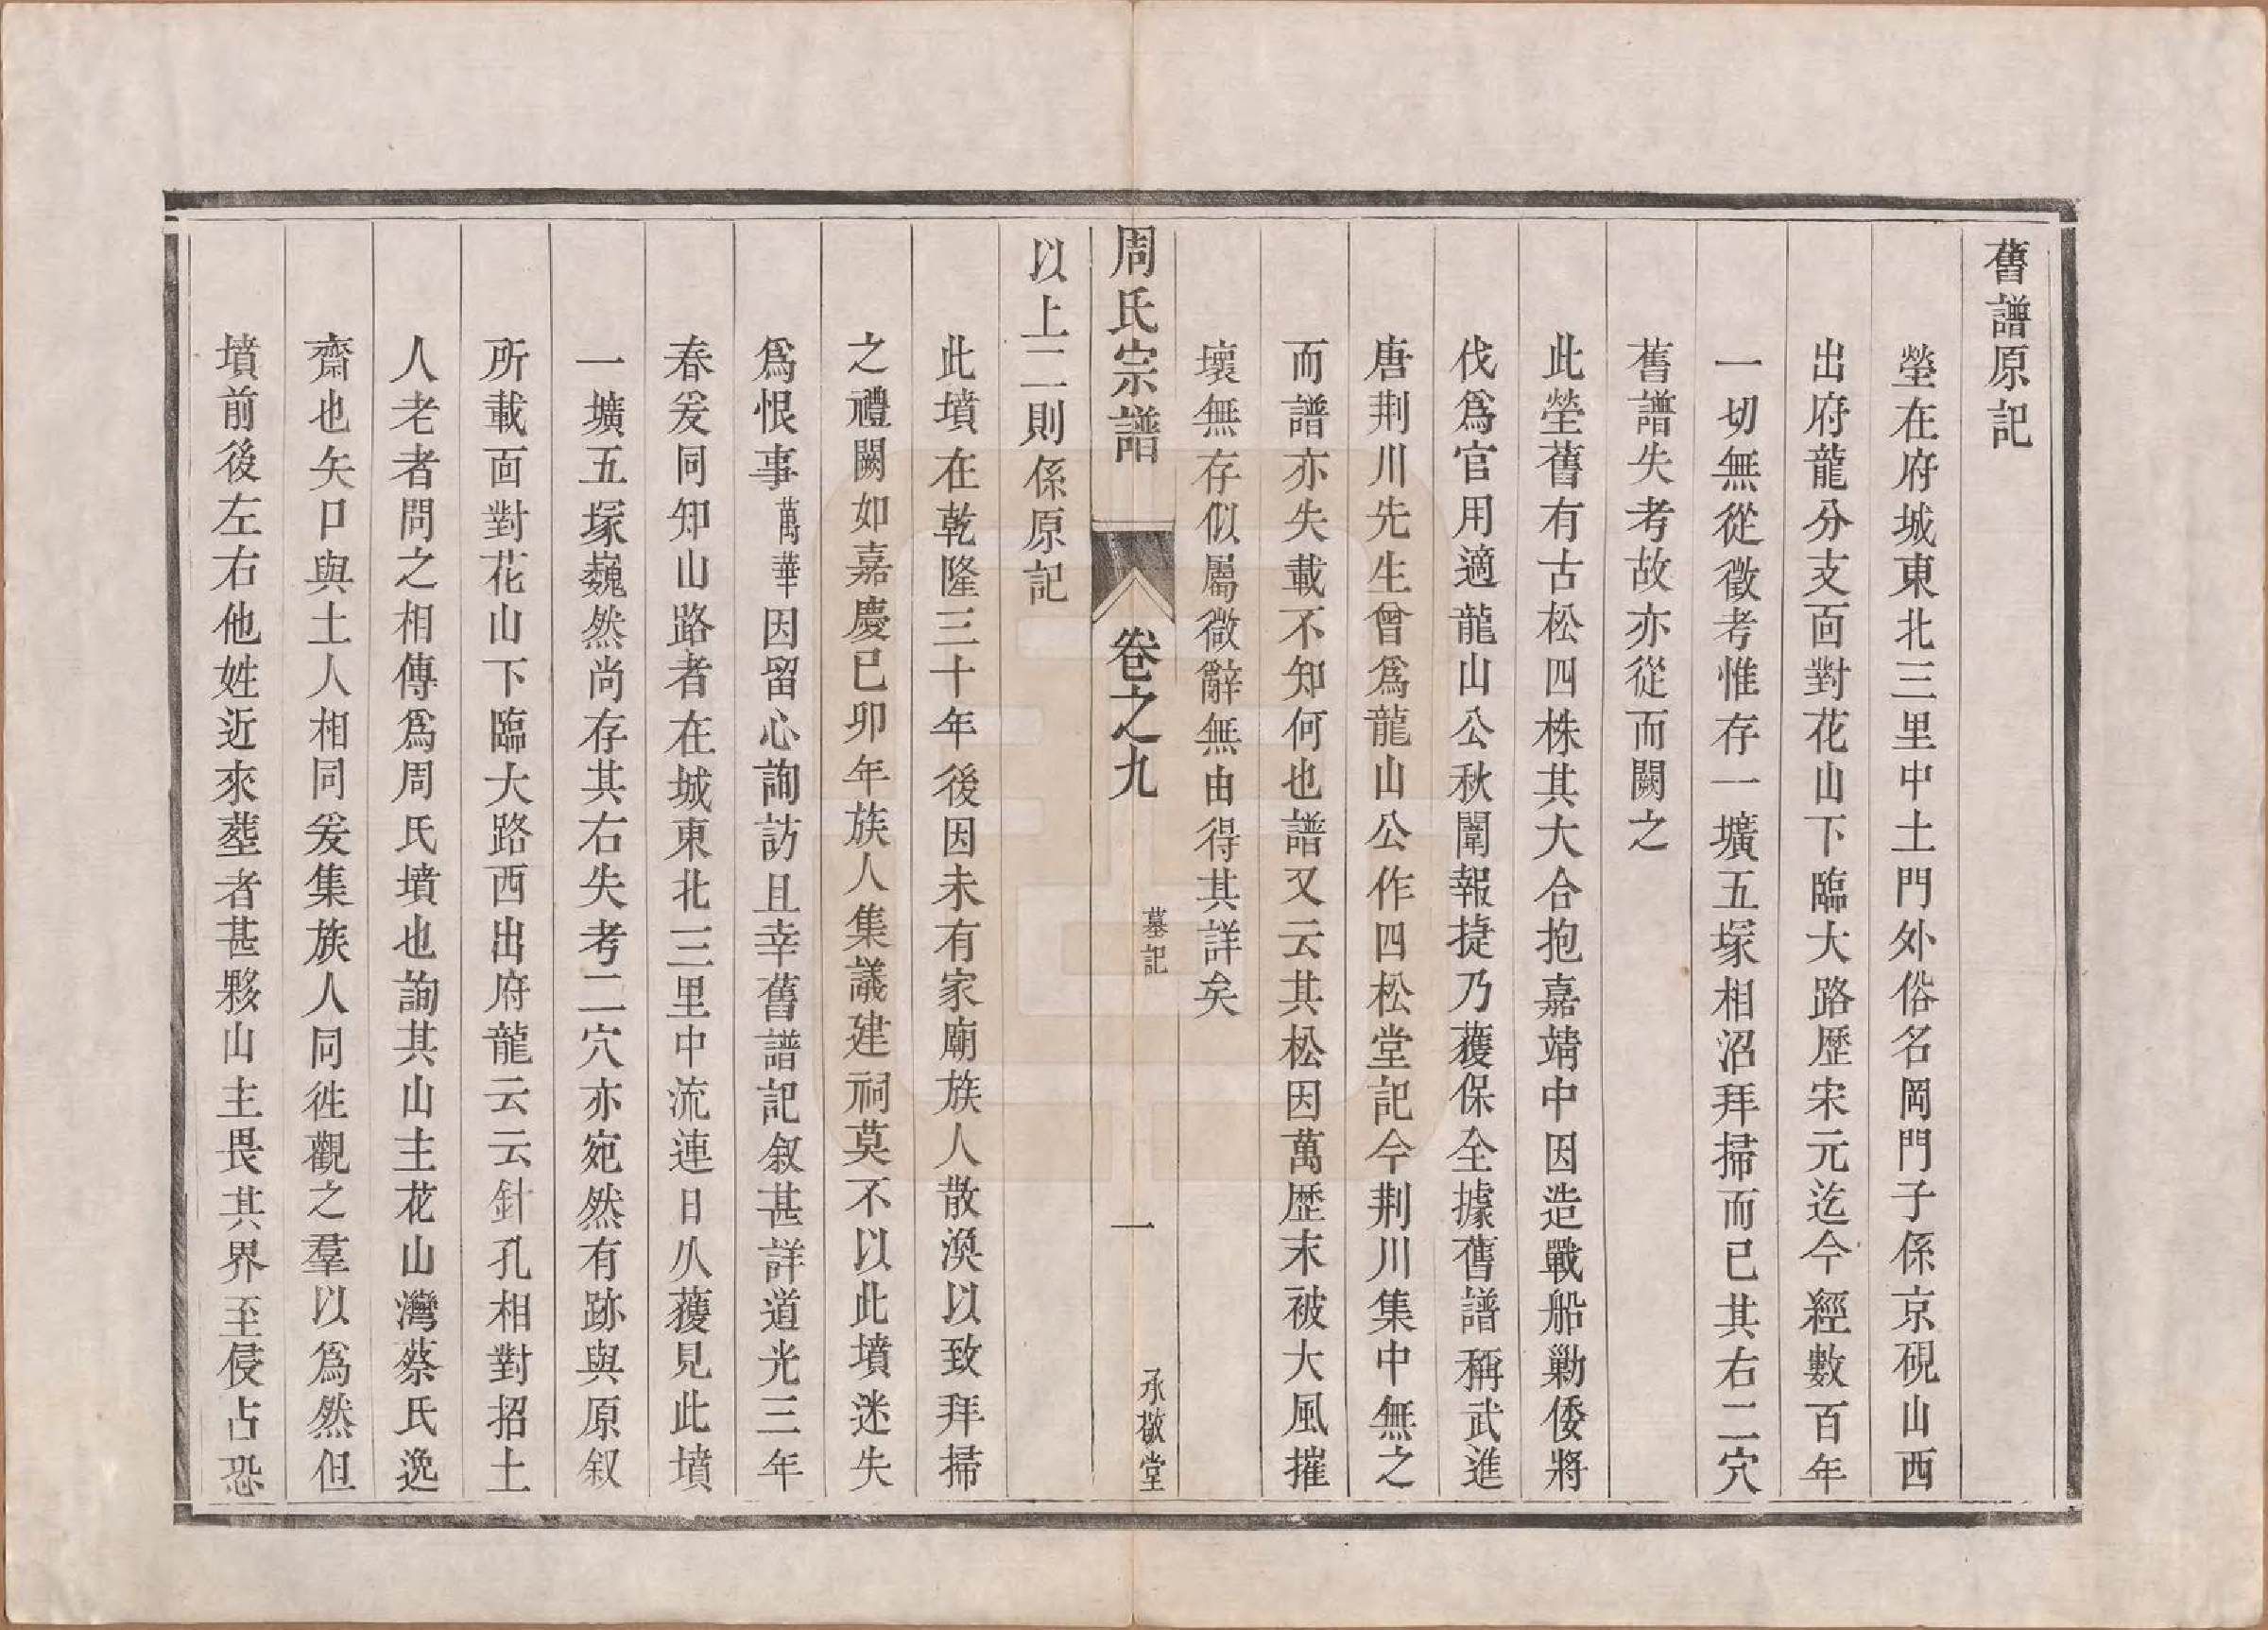 舊譜原記
塋在府城東北三里中土門外俗名岡門子係京硯山西
出府龍分支面對花山下臨大路歷宋元迄今經數百年
一切無從徵考惟存一壙五塚相沿拜掃而已其右二穴
舊譜失考故亦從而闕之
此塋舊有古松四株其大合抱嘉靖中因造戰船勦倭將
伐爲官用適龍山公秋闈報捷乃獲保全據舊譜稱武進
唐荆川先生曾爲龍山公作四松堂記今荆川集中無之
而譜亦失載不知何也譜又云其松因萬歷末被大風摧
壞無存似屬微辭無由得其詳矣
周氏宗譜 卷之九 墓記 一 承敬堂
以上二則係原記
此墳在乾隆三十年後因未有家廟族人散渙以致拜掃
之禮闕如嘉慶已卯年族人集議建祠莫不以此墳迷失
爲恨事萬華因留心詢訪且幸舊譜記叙甚詳道光三年
春爰同知山路者在城東北三里中流連日久獲見此墳
一壙五塚巍然尚存其右失考二穴亦宛然有跡與原叙
所載面對花山下臨大路西出府龍云云針孔相對招土
人老者問之相傳爲周氏墳也詢其山主花山灣蔡氏逸
齋也矢口與土人相同爰集族人同往觀之羣以爲然但
墳前後左右他姓近來塟者甚夥山主畏其界至侵占恐